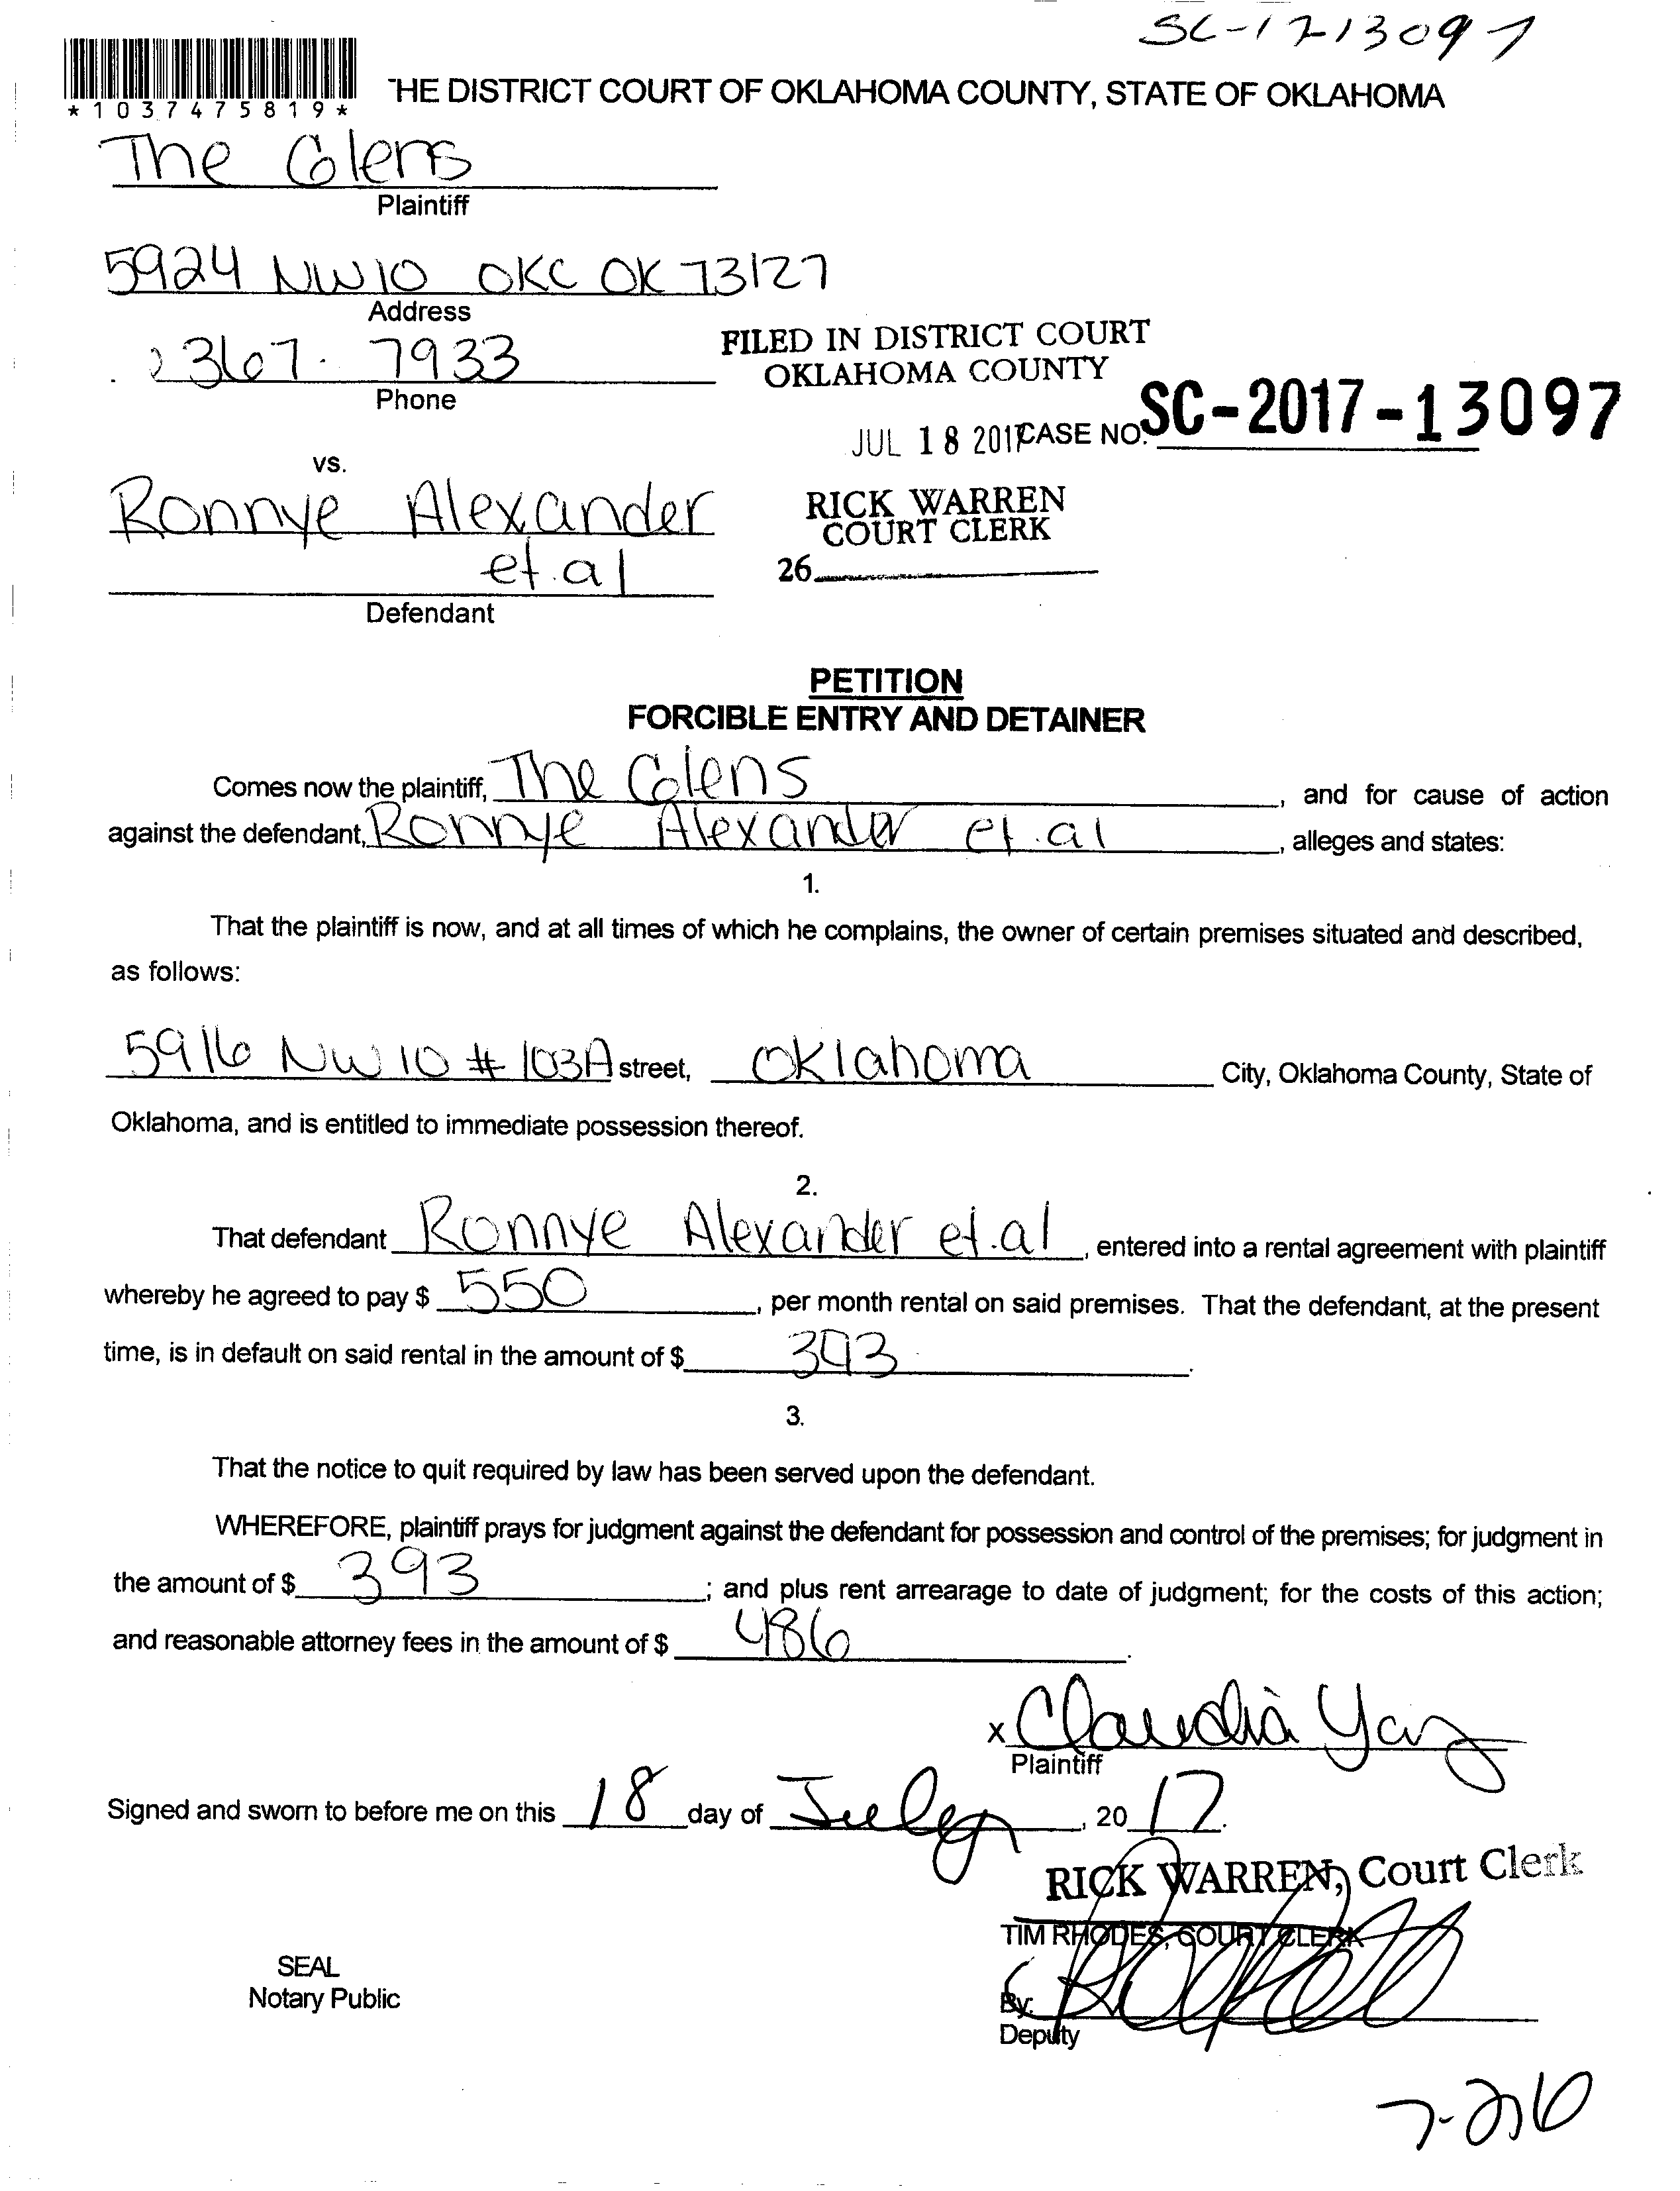 SC-17-13097
*1037475819*
THE DISTRICT COURT OF OKLAHOMA COUNTY, STATE OF OKLAHOMA
The Glens
Plaintiff
5924 NW 10 OKC OK 73127
Address
367-7933
Phone
FILED IN DISTRICT COURT
OKLAHOMA COUNTY
JUL 18 2017
CASE NO. SC-2017-13097
vs.
RICK WARREN
COURT CLERK
26
Ronnye Alexander
et.al
Defendant
PETITION
FORCIBLE ENTRY AND DETAINER
Comes now the plaintiff, The Glens, and for cause of action
against the defendant, Ronnye Alexander et.al, alleges and states:
1.
That the plaintiff is now, and at all times of which he complains, the owner of certain premises situated and described,
as follows:
5916 NW 10 # 103A street, Oklahoma City, Oklahoma County, State of
Oklahoma, and is entitled to immediate possession thereof.
2.
That defendant Ronnye Alexander et.al, entered into a rental agreement with plaintiff
whereby he agreed to pay $ 550, per month rental on said premises. That the defendant, at the present
time, is in default on said rental in the amount of $ 393.
3.
That the notice to quit required by law has been served upon the defendant.
WHEREFORE, plaintiff prays for judgment against the defendant for possession and control of the premises; for judgment in
the amount of $ 393; and plus rent arrearage to date of judgment; for the costs of this action;
and reasonable attorney fees in the amount of $ 486.
x Claudia
Plaintiff
Signed and sworn to before me on this 18 day of July, 2017.
RICK WARREN, Court Clerk
TIM RHODES, COURT CLERK
By:
Deputy
SEAL
Notary Public
7-26